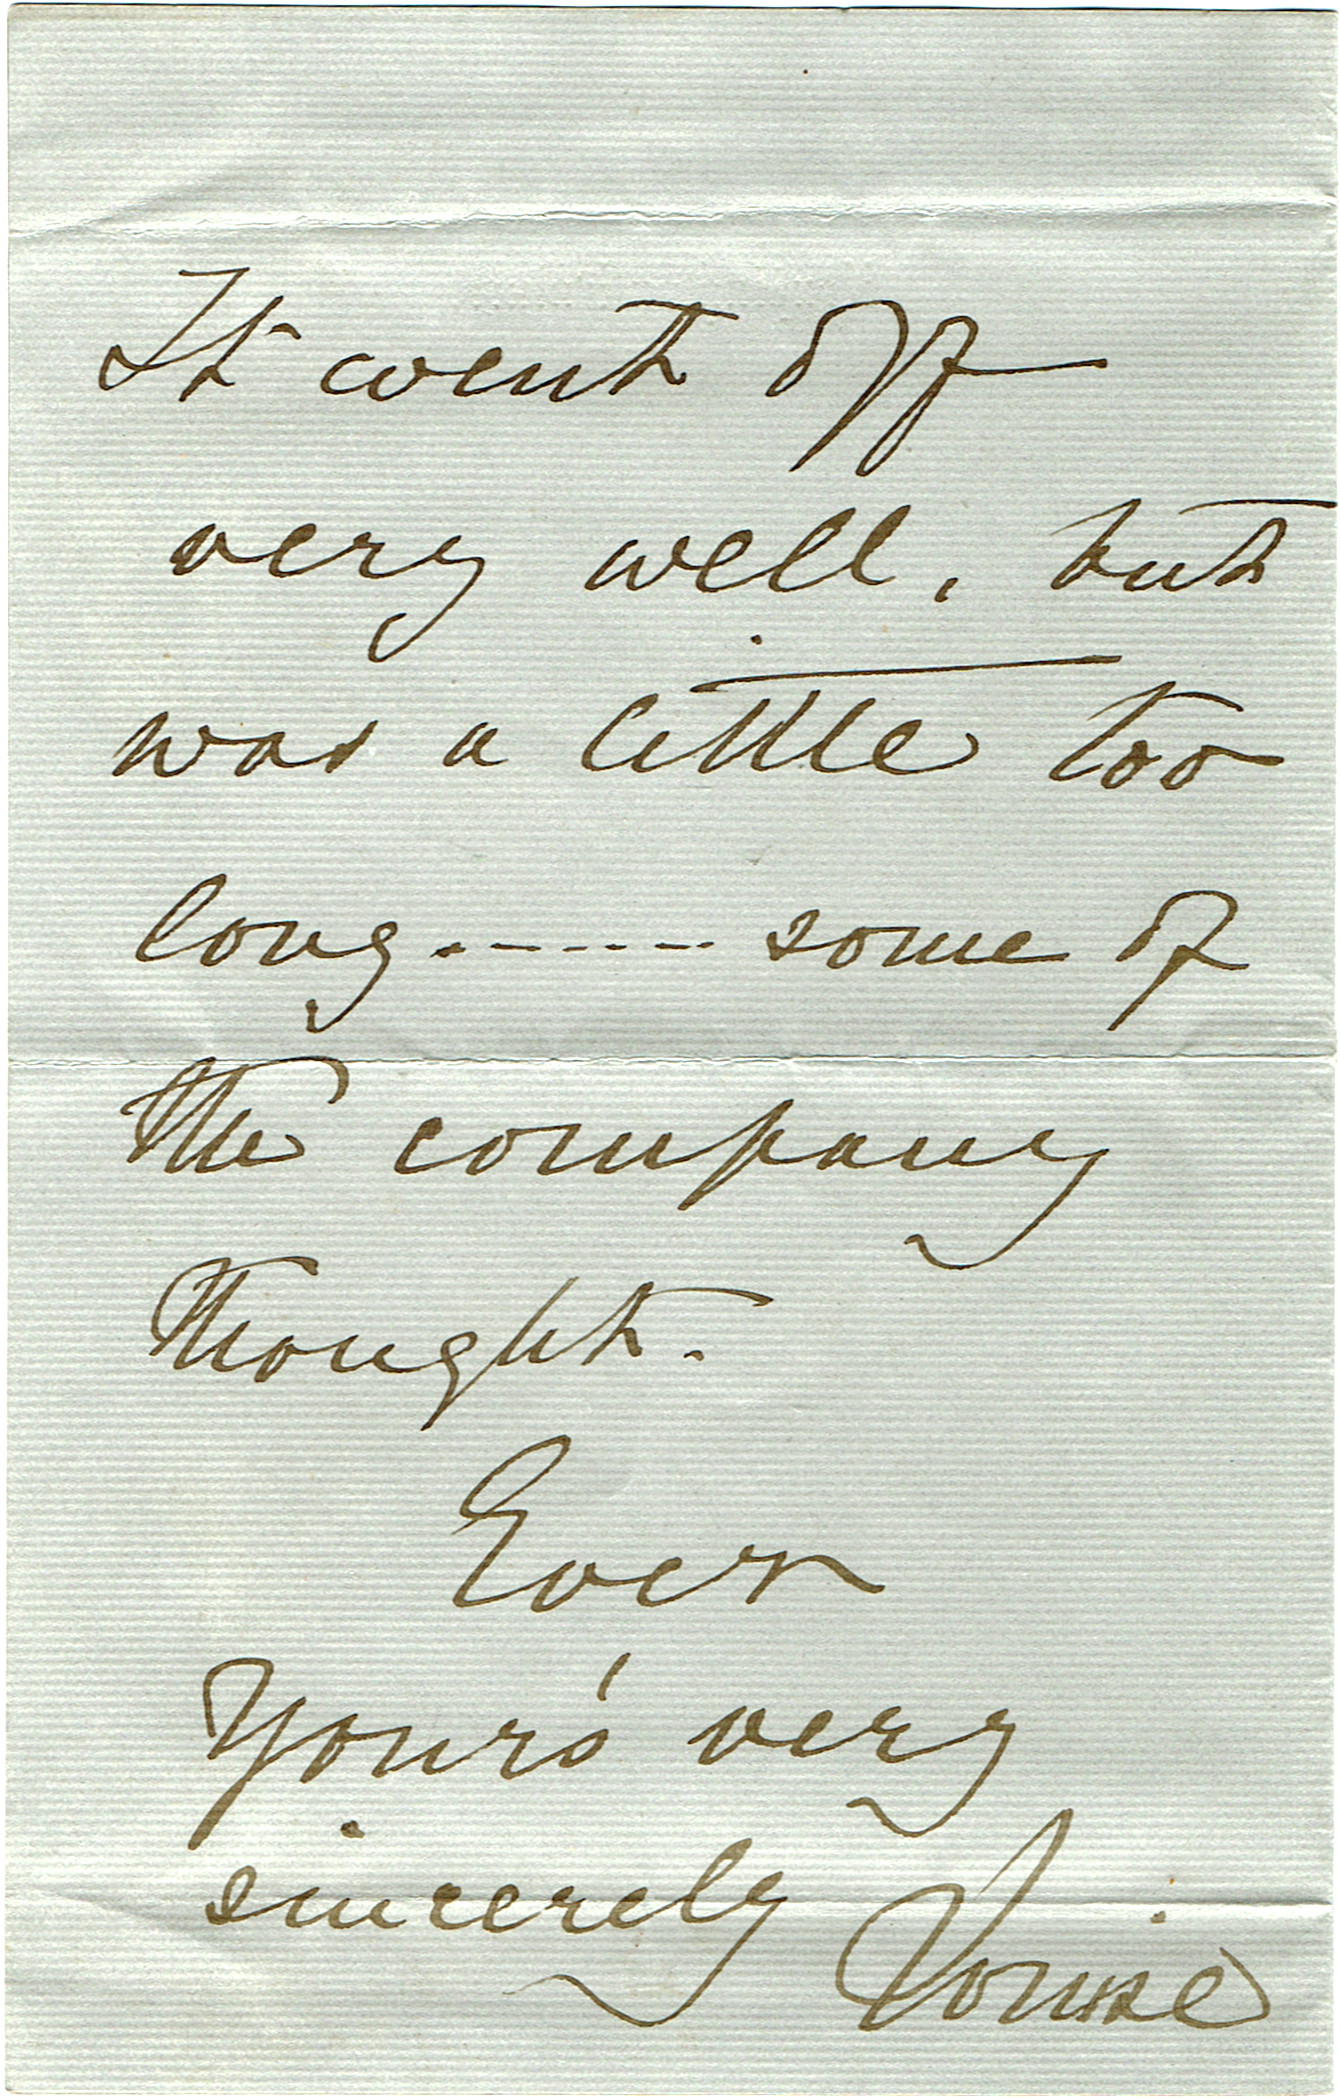 It went off
very well, but
was a little too
long.----- some of
the company
thought.
Ever
Your's very
sincerely Louise